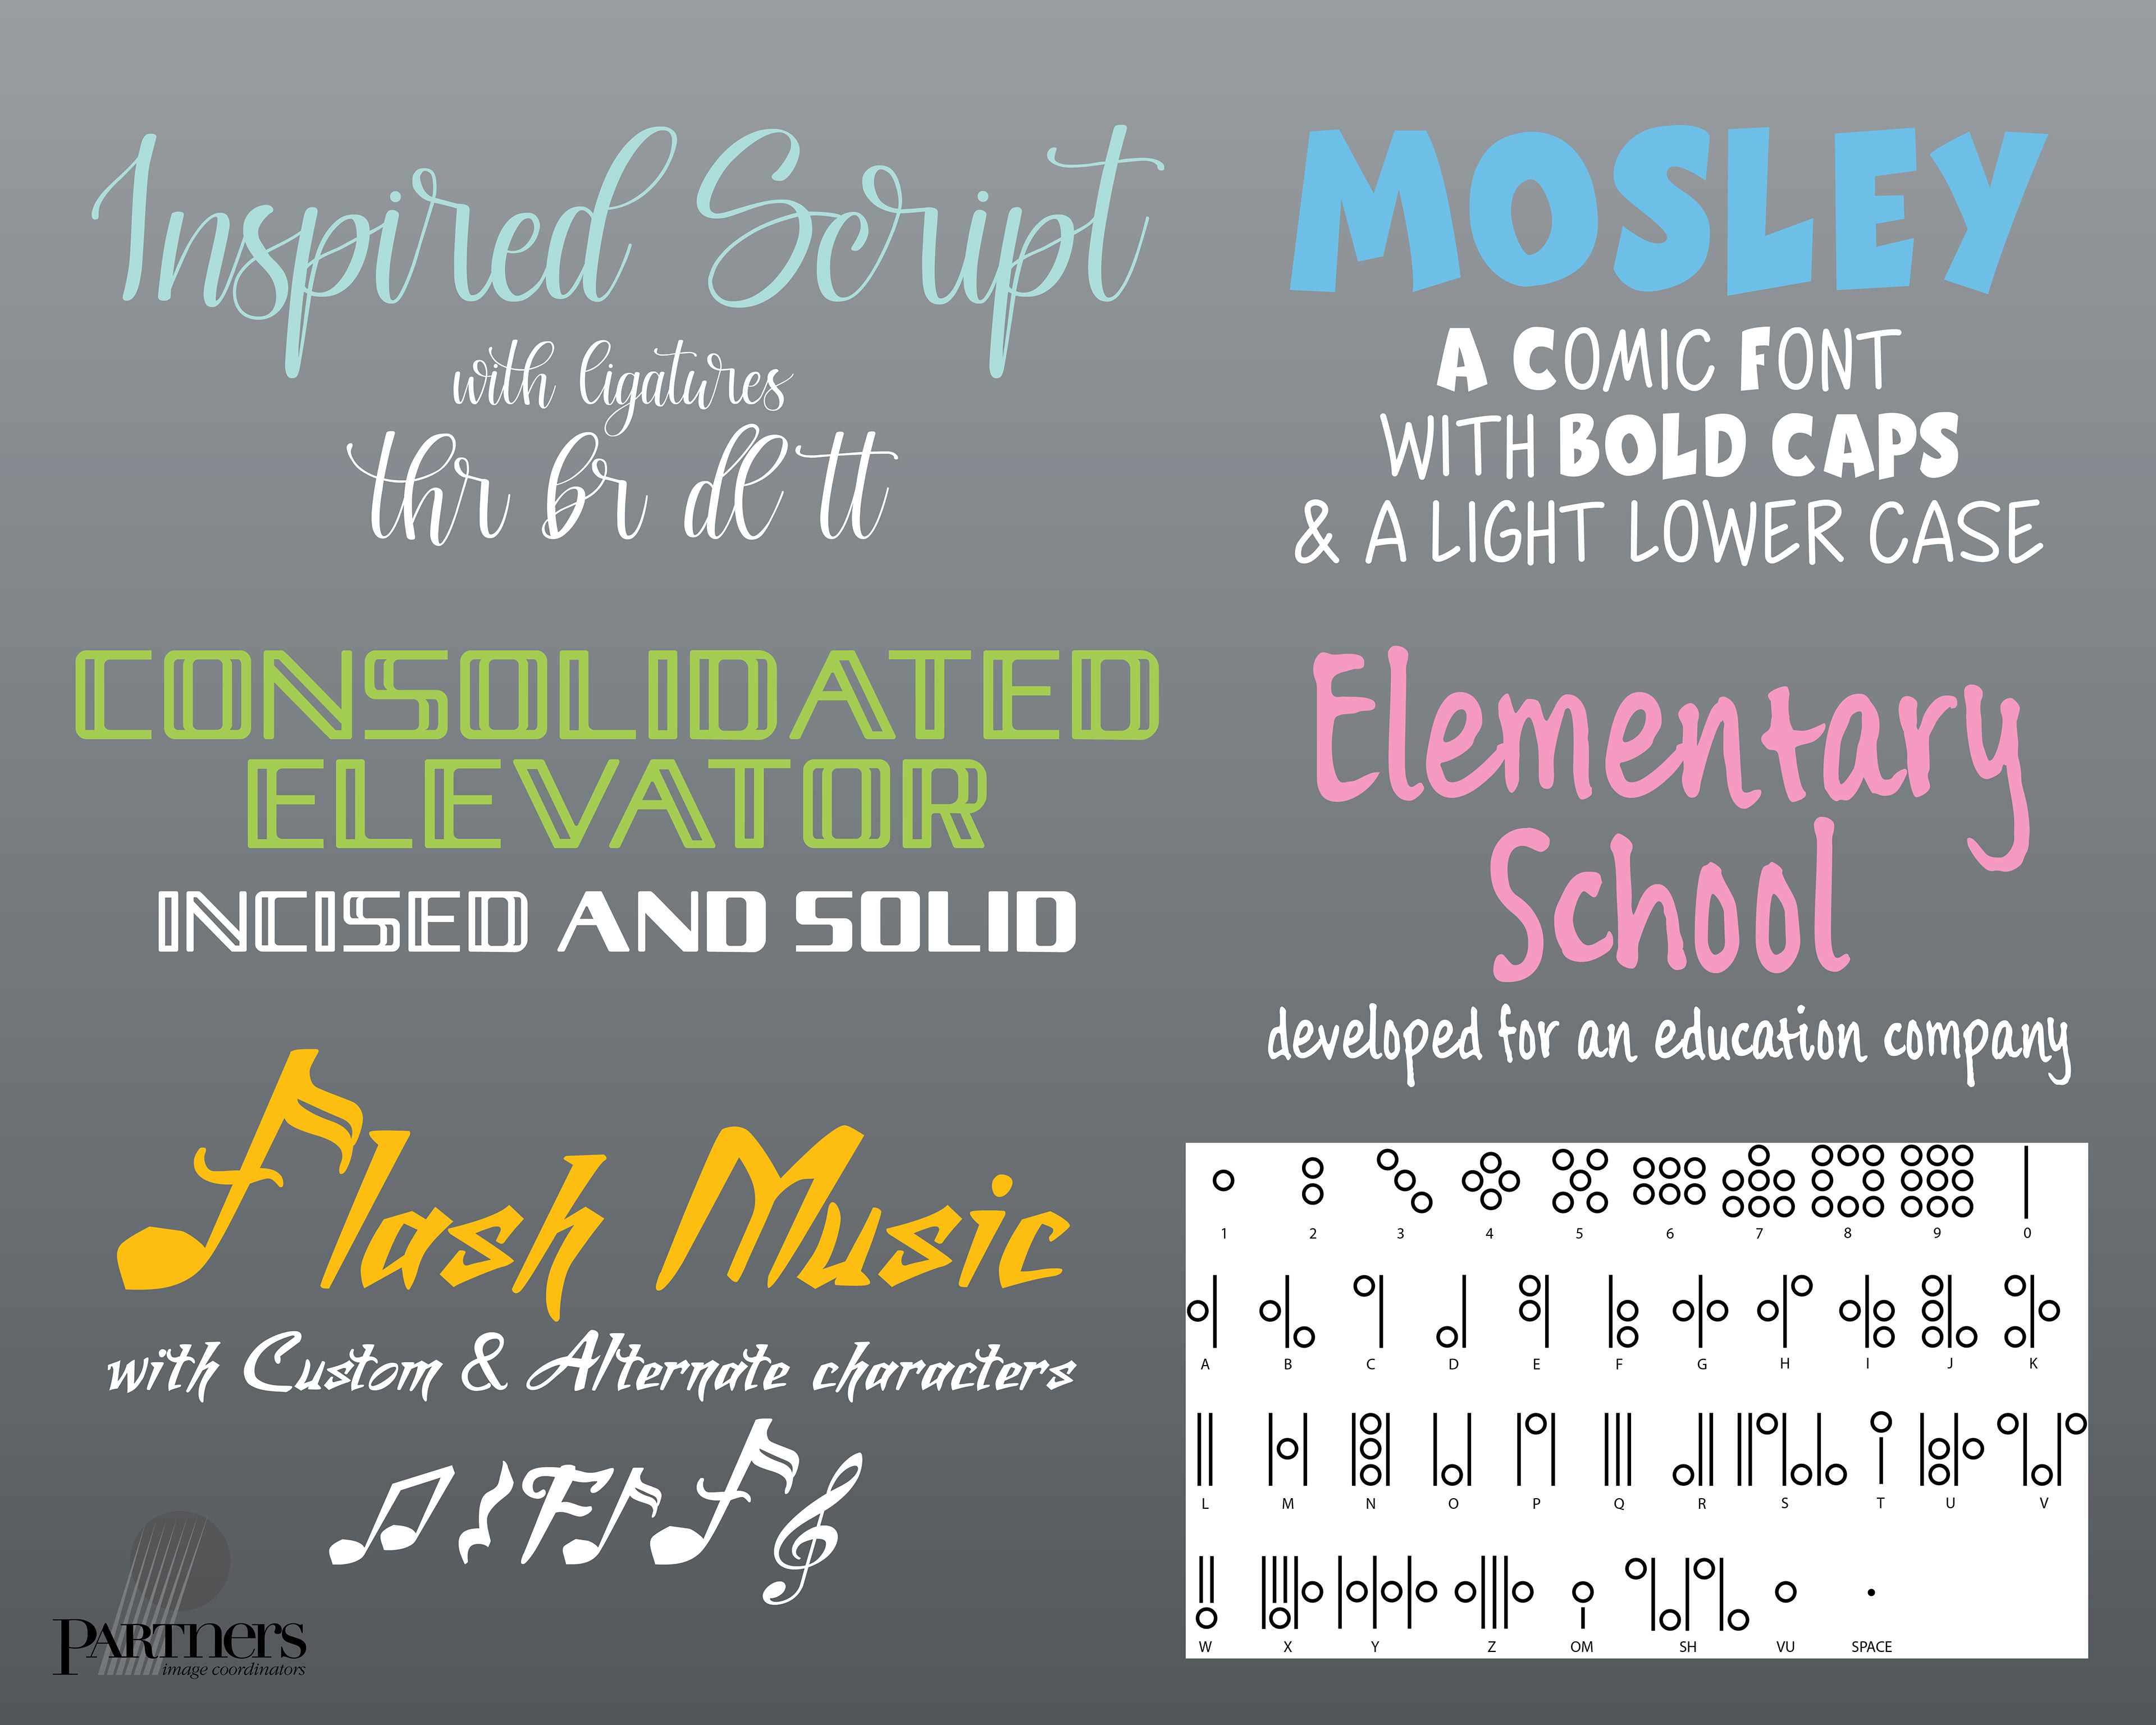 Inspired Script
with ligatures
thr br dl tt
MOSLEY
A COMIC FONT
WITH BOLD CAPS
& A LIGHT LOWER CASE
CONSOLIDATED
ELEVATOR
INCISED AND SOLID
Elementary
School
developed for an education company
Flash Music
with Custom & Alternate characters
1 2 3 4 5 6 7 8 9 0
A B C D E F G H I J K
L M N O P Q R S T U V
W X Y Z OM SH VU SPACE
PARTners
image coordinators